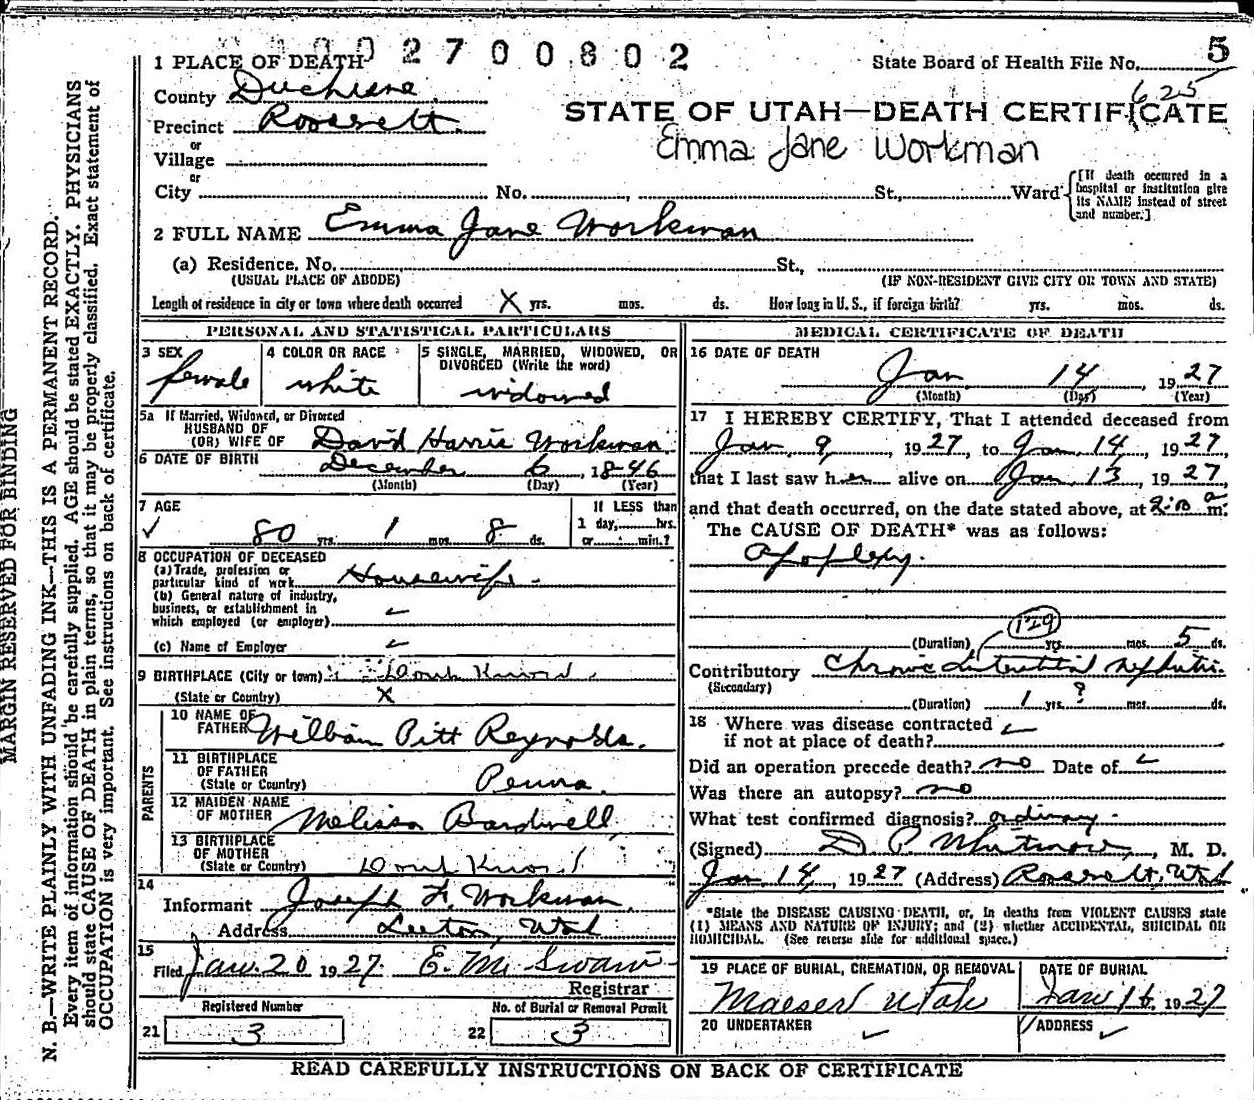 002700802
5
1 PLACE OF DEATH
State Board of Health File No.
625
County Duchesne
STATE OF UTAH—DEATH CERTIFICATE
Precinct Roosevelt
Emma Jane Workman
or
Village
or
City No. St., Ward
[If death occurred in a hospital or institution give its NAME instead of street and number.]
2 FULL NAME Emma Jane Workman
(a) Residence, No. St.,
(USUAL PLACE OF ABODE) (IF NON-RESIDENT GIVE CITY OR TOWN AND STATE)
Length of residence in city or town where death occurred X yrs. mos. ds. How long in U. S., if foreign birth? yrs. mos. ds.
PERSONAL AND STATISTICAL PARTICULARS
3 SEX
female
4 COLOR OR RACE
white
5 SINGLE, MARRIED, WIDOWED, OR DIVORCED (Write the word)
widowed
5a If Married, Widowed, or Divorced
HUSBAND OF
(OR) WIFE OF David Harris Workman
6 DATE OF BIRTH December 6, 1846
(Month) (Day) (Year)
7 AGE
80 yrs. 1 mos. 8 ds.
If LESS than
1 day, hrs.
or min.?
8 OCCUPATION OF DECEASED
(a) Trade, profession or
particular kind of work Housewife
(b) General nature of industry,
business, or establishment in
which employed (or employer)
(c) Name of Employer
9 BIRTHPLACE (City or town) Dont Know
(State or Country) X
PARENTS
10 NAME OF
FATHER William Pitt Reynolds.
11 BIRTHPLACE
OF FATHER
(State or Country) Penna.
12 MAIDEN NAME
OF MOTHER Melissa Bardwell
13 BIRTHPLACE
OF MOTHER
(State or Country) Dont Know
14
Informant Joseph F. Workman.
Address Leeton, Utah
15
Filed Jan 20 1927. E. M. Swain
Registrar
Registered Number
21 3
No. of Burial or Removal Permit
22 3
MEDICAL CERTIFICATE OF DEATH
16 DATE OF DEATH
Jan 14, 1927
(Month) (Day) (Year)
17 I HEREBY CERTIFY, That I attended deceased from
Jan. 9, 1927, to Jan. 14, 1927,
that I last saw her alive on Jan. 13, 1927,
and that death occurred, on the date stated above, at a m.
The CAUSE OF DEATH* was as follows:
Apoplexy.
129
(Duration) yrs. mos. 5 ds.
Contributory Chronic Interstitial Nephritis
(Secondary)
(Duration) 1 yrs. ? mos. ds.
18 Where was disease contracted
if not at place of death?
Did an operation precede death? no Date of
Was there an autopsy? no
What test confirmed diagnosis? ordinary
(Signed) D P Whitmore, M. D.
Jan. 14, 1927 (Address) Roosevelt, Utah
*State the DISEASE CAUSING DEATH, or, in deaths from VIOLENT CAUSES state
(1) MEANS AND NATURE OF INJURY; and (2) whether ACCIDENTAL, SUICIDAL OR
HOMICIDAL. (See reverse side for additional space.)
19 PLACE OF BURIAL, CREMATION, OR REMOVAL
Maeser Utah
DATE OF BURIAL
Jan 16, 1927
20 UNDERTAKER
ADDRESS
READ CAREFULLY INSTRUCTIONS ON BACK OF CERTIFICATE
MARGIN RESERVED FOR BINDING
N. B.—WRITE PLAINLY WITH UNFADING INK—THIS IS A PERMANENT RECORD.
Every item of information should be carefully supplied. AGE should be stated EXACTLY. PHYSICIANS
should state CAUSE OF DEATH in plain terms, so that it may be properly classified. Exact statement of
OCCUPATION is very important. See instructions on back of certificate.